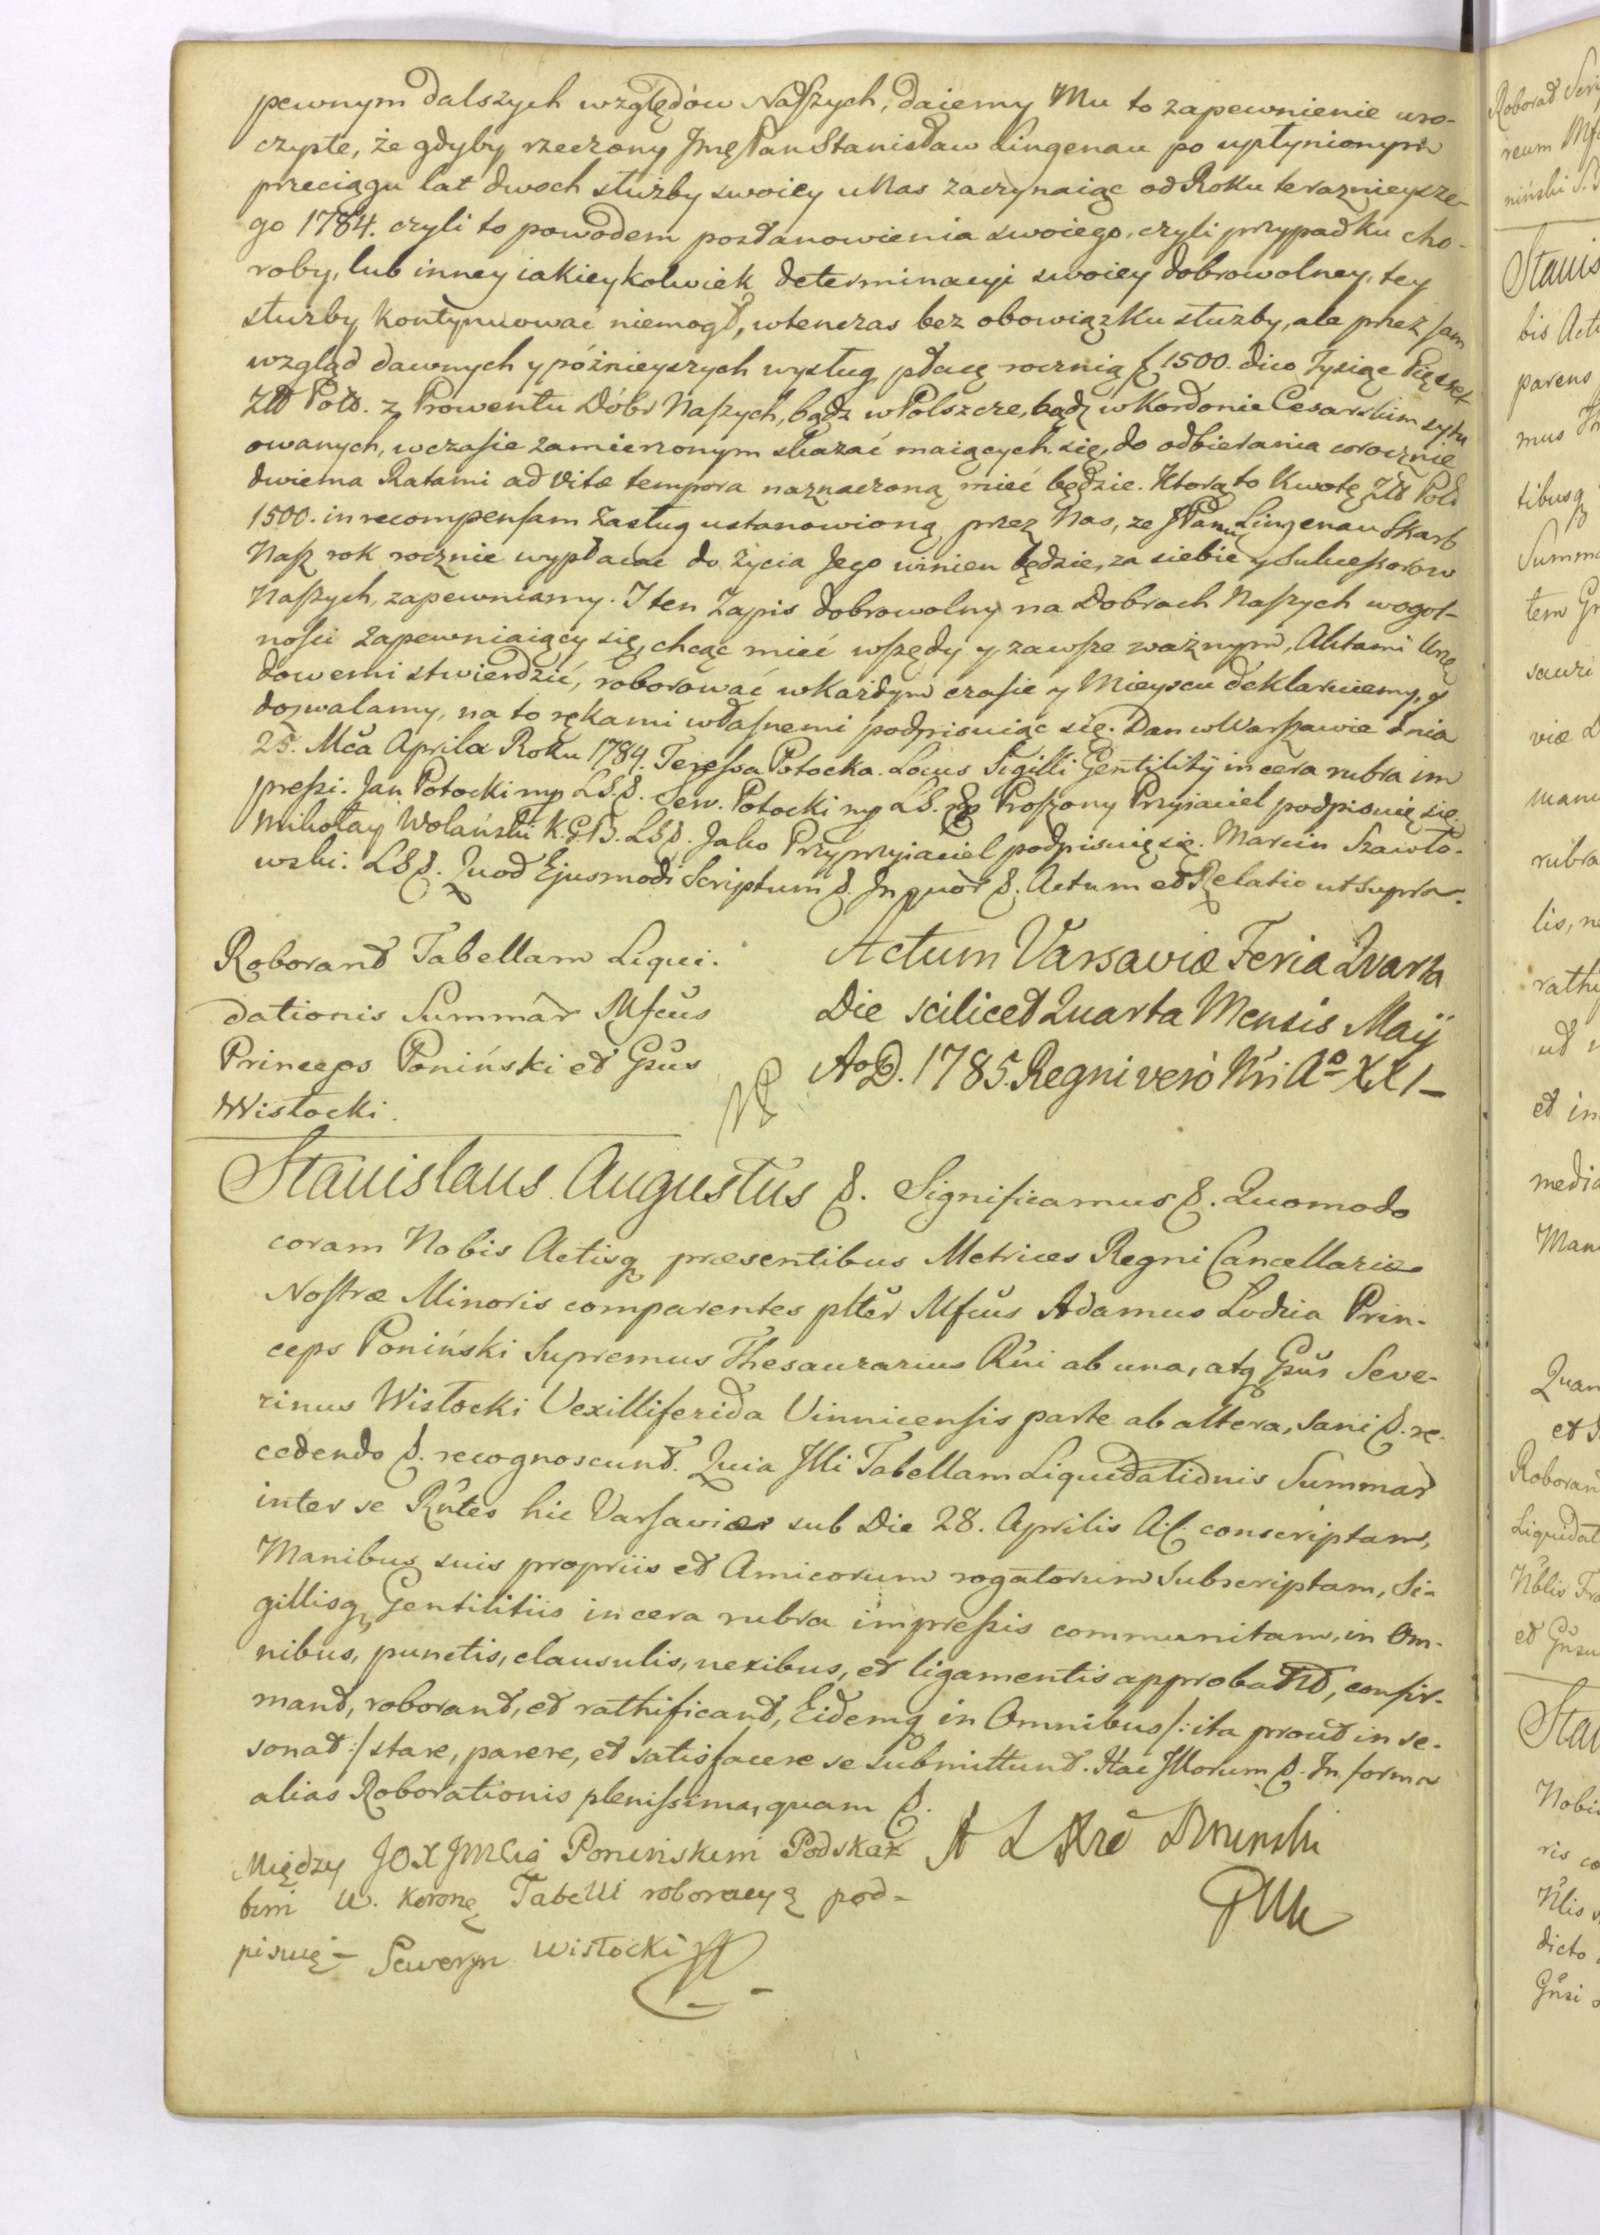 pewnym dalszych względów Naszych, daiemy Mu to zapewnienie uro-
czyste, że gdyby rzeczony Jmę Pan Stanisław Lingenau po upłynionym
przeciągu lat dwoch służby swoiey u Nas zaczynaiąc od Roku teraznieysze-
go 1784. czyli to powodem postanowienia swoiego, czyli przypadku cho-
roby, lub inney iakieykolwiek determinacyi swoiey dobrowolney, tey
służby kontynuować niemogł, wtenczas bez obowiązku służby, ale przez sam
wzgląd dawnych y późnieyszych wysług płacę rocznią f. 1500. dico Tysiąc Pięćset
Złł Poll. z Prowentu Dóbr Naszych, bądz w Polszcze, bądz w Kordonie Cesarskim sytu
owanych, w czasie zamierzonym skazać maiących się, do odbierania corocznie
dwiema Ratami ad vitæ tempora naznaczoną mieć będzie. Ktorą to Kwotę Złł Poll
1500. in recompensam zasług ustanowioną przez Nas, ze JPanu Lingenau Skarb
Nasz rok rocznie wypłacać do życia Jego winien będzie, za siebie y Sukcessorow
Naszych, zapewniamy. I ten Zapis dobrowolny na Dobrach Naszych wogol-
ności zapewniaiący się, chcąc mieć wszędy y zawsze ważnym, Aktami Urzę
dowemi stwierdzić, roborować w każdym czasie y Mieyscu deklaruiemy, y
dozwalamy, na to rękami własnemi podpisuiąc się. Dan w Warszawie dnia
25. Mca Aprila Roku 1784. Teressa Potocka. Locus Sigilli Gentilitij in cera rubra im
pressi. Jan Potocki mp LS. Sew. Potocki mp LS. Proszony Przyiaciel podpisuię się
Mikołay Wolański K.G.B. LS. Jako Przyiaciel podpisuię się. Marcin Szawło-
wski. LS. Quod Ejusmodi Scriptum &. In quor &. Actum et Relatio ut supra.
Roborant Tabellam Liqui-
dationis Summar Mfcus
Princeps Poniński et Gsus
Wisłocki.
Actum Varsaviæ Feria Quarta
Die scilicet Quarta Mensis Maij
AoD. 1785. Regni vero Nri Ao XXI
Stanislaus Augustus &. Significamus &. Quomodo
coram Nobis Actisq præsentibus Metrices Regni Cancellariæ
Nostræ Minoris comparentes plter Mfcus Adamus Lodzia Prin-
ceps Poniński Supremus Thesaurarius Rni ab una, atq Gsus Seve-
rinus Wisłocki Vexilliferida Vinnicensis parte ab altera, Sani &. re-
cedendo &. recognoscunt. Quia Illi Tabellam Liquidationis Summar
inter se Rntes hic Varsaviæ sub Die 28. Aprilis A.C. conscriptam,
Manibus suis propriis et Amicorum rogatorum Subscriptam, Si-
gillisq Gentilitiis in cera rubra impressis communitam, in Om-
nibus, punctis, clausulis, nexibus, et ligamentis approbant, confir-
mant, roborant, et rathificant, Eidemq in Omnibus /: ita prout in se
sonat :/ stare, parere, et satisfacere se submittunt. Hac Illorum &. In forma
alias Roborationis plenissima, quam &.
Między JOX JMCią Ponińskim Podskar
bim W. Koronę Tabelli roboracyą pod-
pisuię – Seweryn Wisłocki
A L Poninski